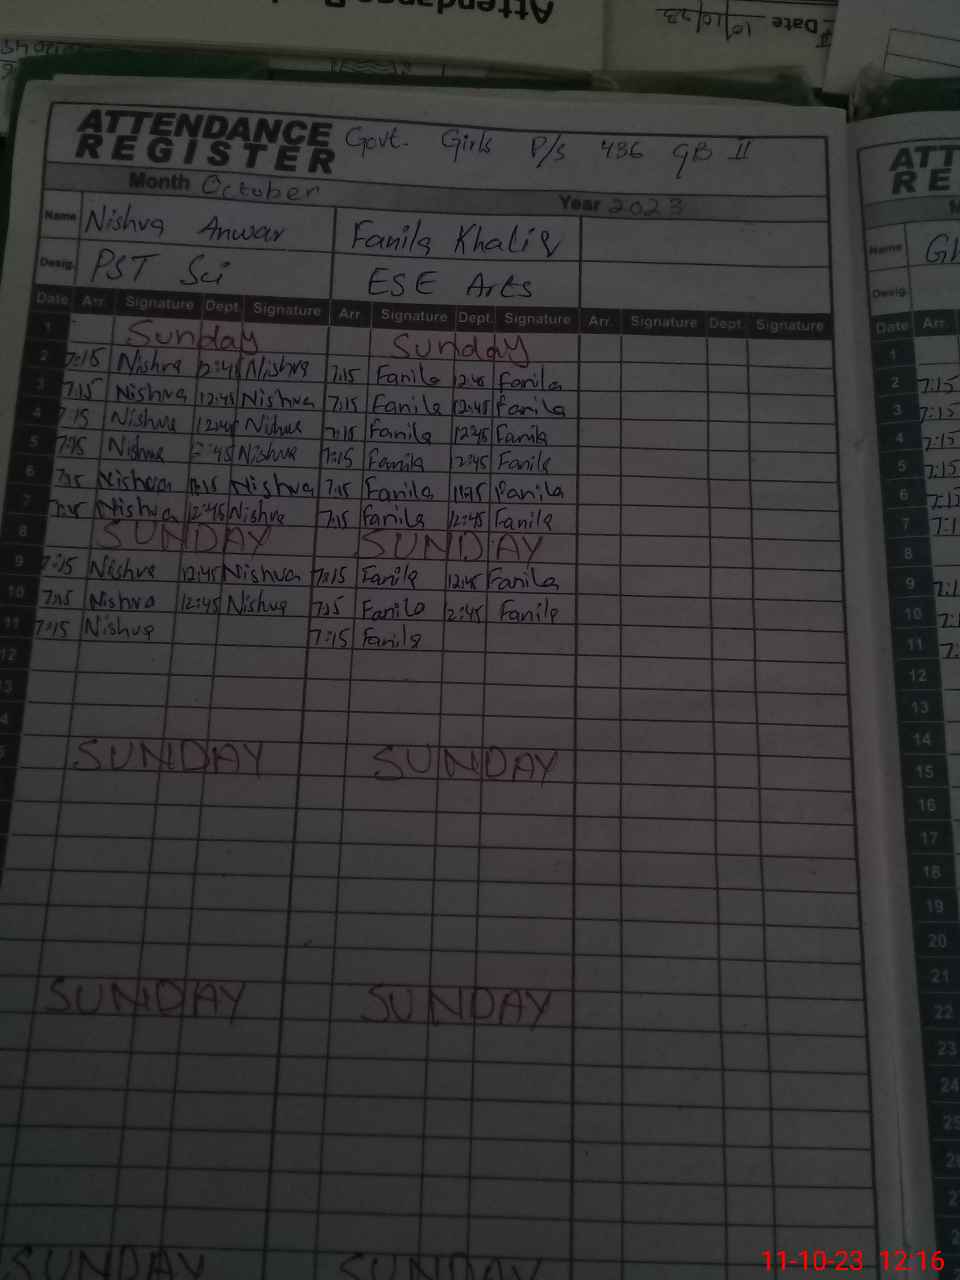 Attendance
Date 10/10/23
ATTENDANCE REGISTER Govt. Girls P/S 436 GB II
Month October Year 2023
Name Nishva Anwar Fanila Khaliq
Desig. PST Sci ESE Arts
Date Arr. Signature Dept. Signature Arr. Signature Dept. Signature Arr. Signature Dept. Signature
1 Sunday Sunday
2 7:15 Nishva 12:45 Nishva 7:15 Fanila 12:45 Fanila
3 7:15 Nishva 12:45 Nishva 7:15 Fanila 12:45 Fanila
4 7:15 Nishva 12:45 Nishva 7:15 Fanila 12:45 Fanila
5 7:15 Nishva 12:45 Nishva 7:15 Fanila 12:45 Fanila
6 7:15 Nishva Nishva 7:15 Fanila Fanila
7 7:15 Nishva 12:45 Nishva 7:15 Fanila 12:45 Fanila
8 SUNDAY SUNDAY
9 7:15 Nishva 12:45 Nishva 7:15 Fanila 12:45 Fanila
10 7:15 Nishva 12:45 Nishva 7:15 Fanila 12:45 Fanila
11 7:15 Nishva 7:15 Fanila
12
13
SUNDAY SUNDAY
SUNDAY SUNDAY
SUNDAY SUNDAY
ATT
RE
Name
Desig.
Date Arr.
1
2 7:15
3 7:15
4 7:15
5 7:15
6
7
8
9
10
11
12
13
14
15
16
17
18
19
20
21
22
23
24
11-10-23 12:16